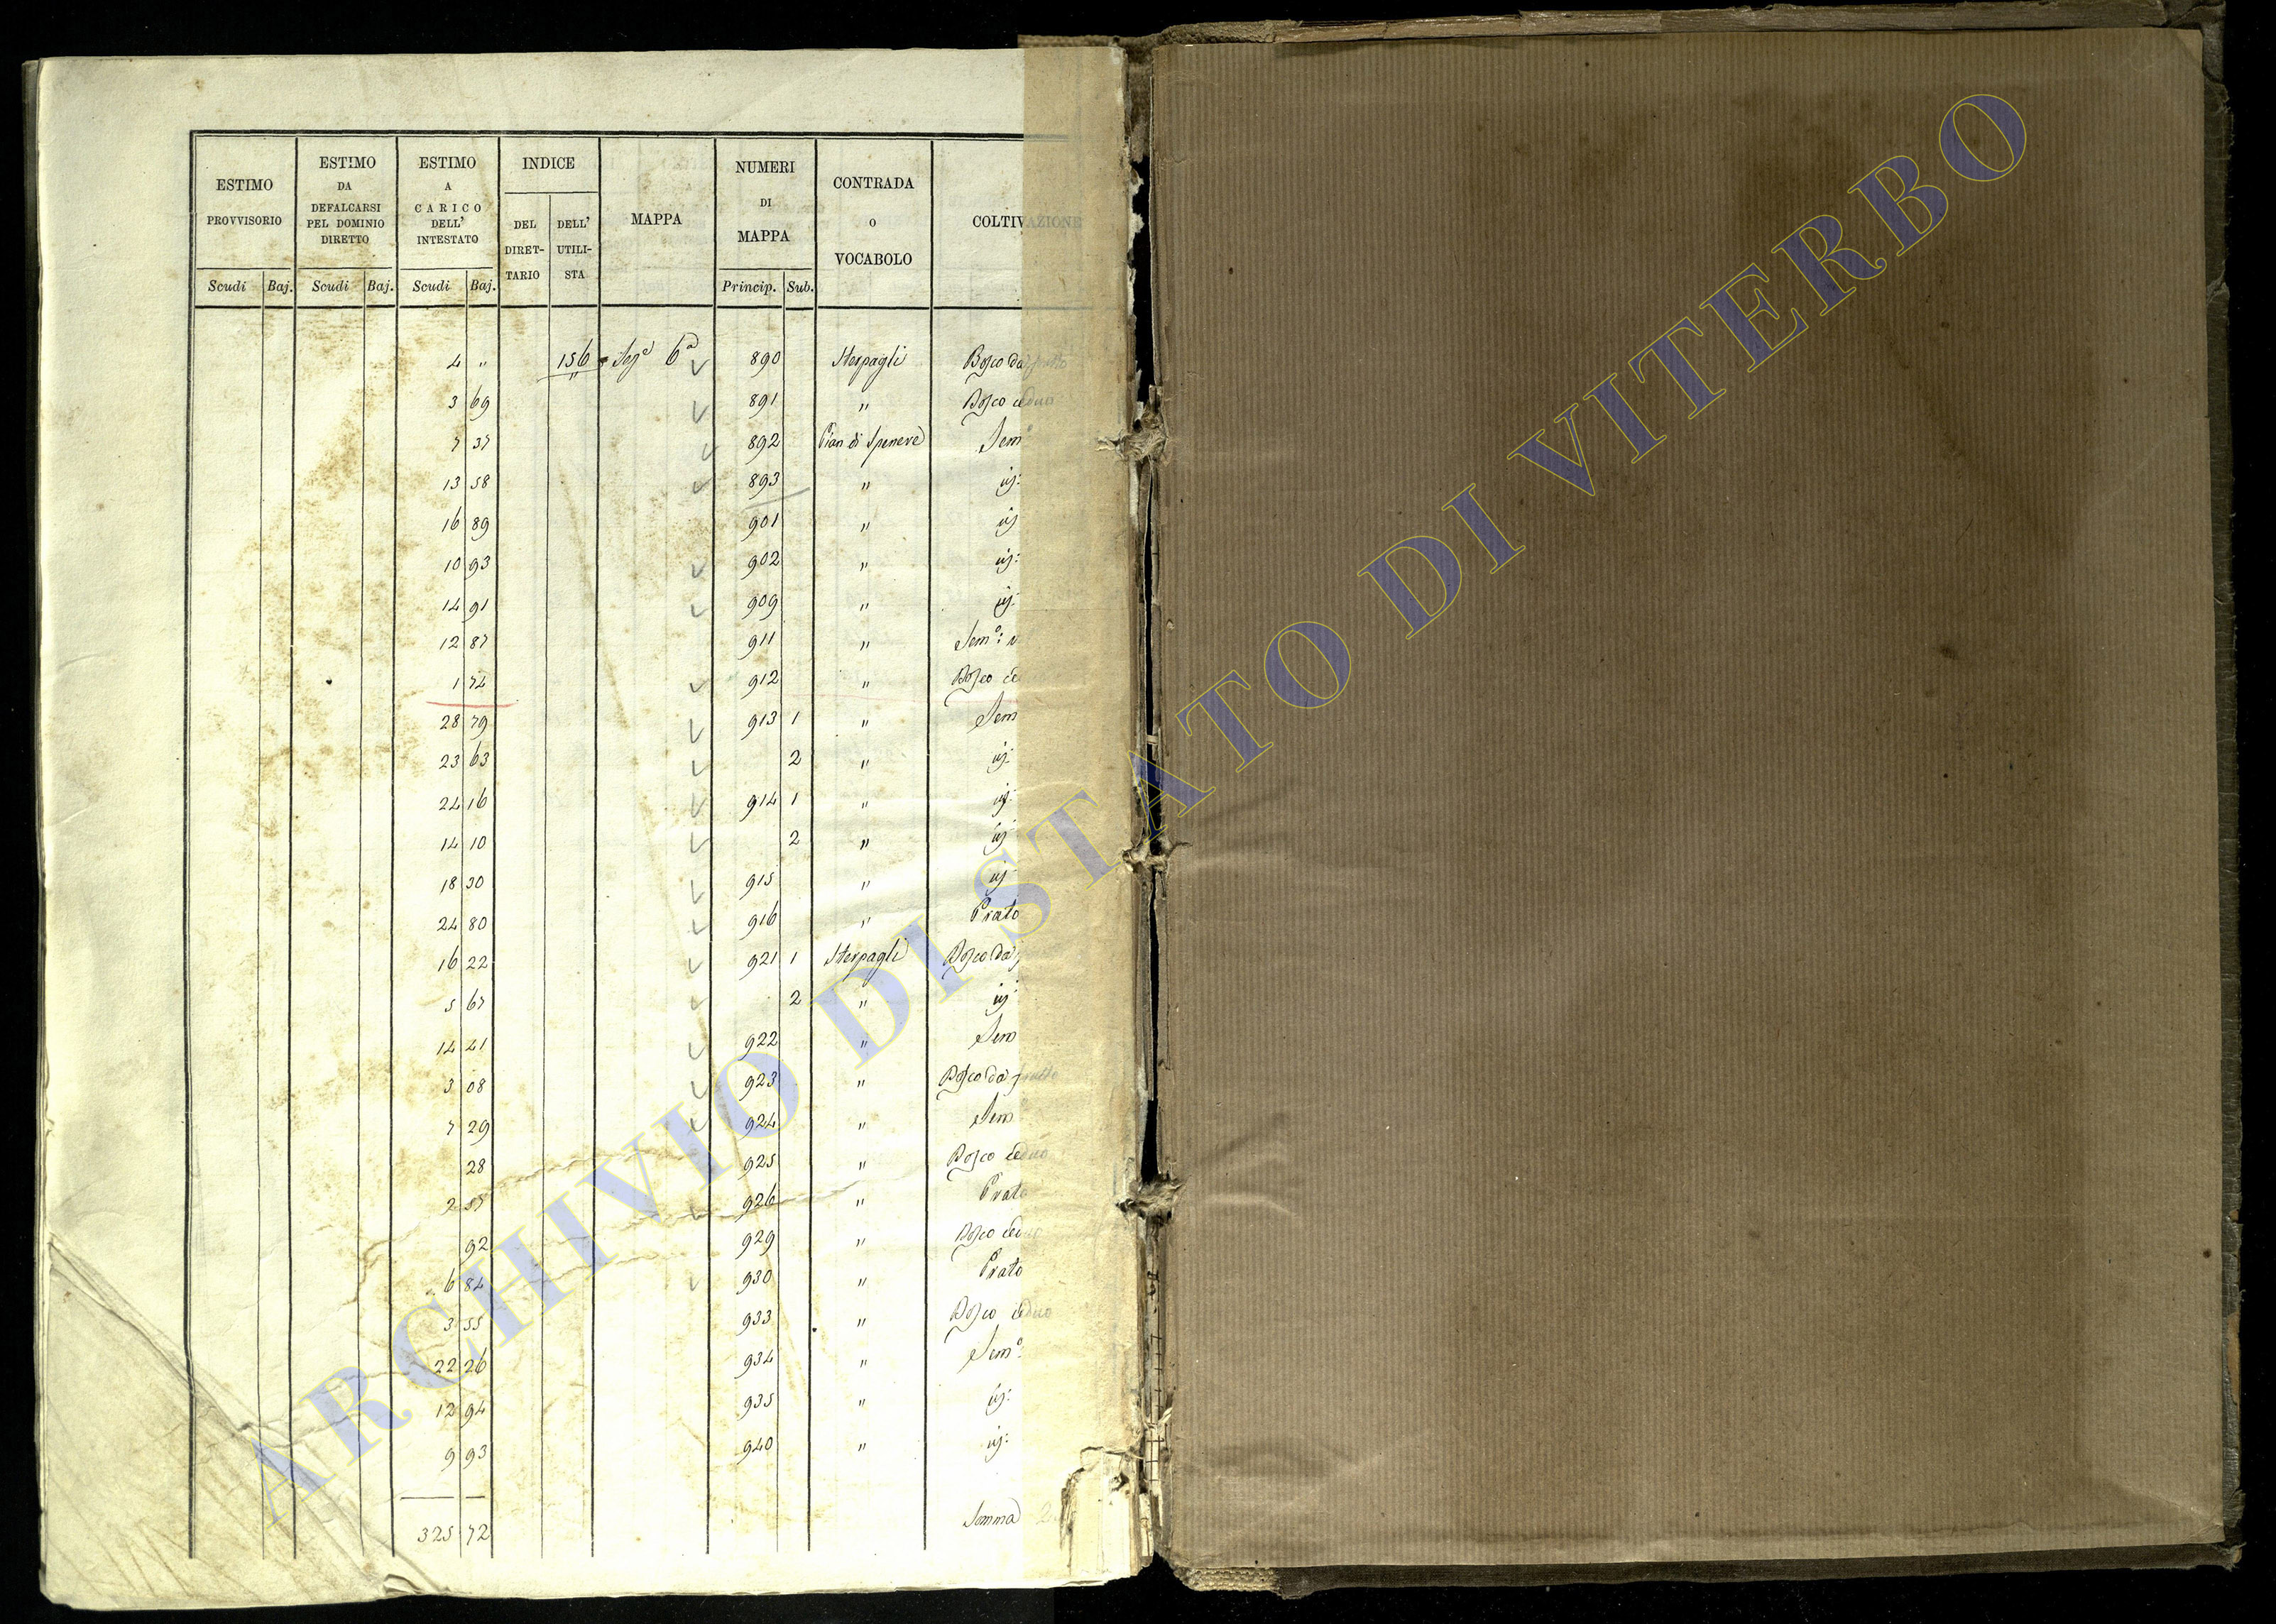 ESTIMO PROVVISORIO | ESTIMO DA DEFALCARSI PEL DOMINIO DIRETTO | ESTIMO A CARICO DELL' INTESTATO | INDICE | MAPPA | NUMERI DI MAPPA | CONTRADA O VOCABOLO | COLTIVAZIONE
DEL DIRETTARIO | DELL' UTILISTA
Scudi | Baj. | Scudi | Baj. | Scudi | Baj. | Princip. | Sub.
4 " 156 Sez.e 6a 890 Sterpagli Bosco da frutto
3 69 891 " Bosco ceduo
7 37 892 Pian di Speneve Sem
13 58 893 " id:
16 89 901 " id
10 93 902 " id:
14 91 909 " id:
12 87 911 " Semo: v
1 74 912 " Bosco ce
28 79 913 1 " Sem
23 63 2 " id:
24 16 914 1 " id:
14 10 2 " id
18 30 915 " id
24 80 916 " Prato
16 22 921 1 Sterpagli Bosco da f
5 67 2 " id
14 41 922 " Sem
3 08 923 " Bosco da frutto
7 29 924 " Sem
28 925 " Bosco ceduo
2 57 926 " Prato
92 929 " Bosco ced
6 84 930 " Prato
3 55 933 " Bosco ceduo
22 26 934 " Semo:
12 94 935 " id:
9 93 940 " id:
325 72 Somma
ARCHIVIO DI STATO DI VITERBO